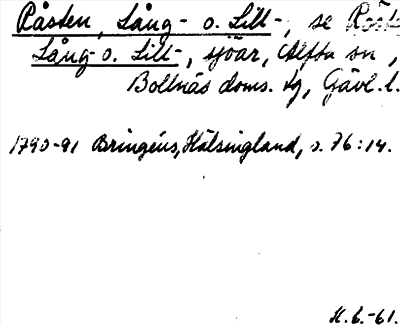 Råsten, Lång- o. Lill-, se Röst
Lång- o. Lill-, sjöar, Alfta sn,
Bollnäs doms. tg, Gävl. l.
1790-91 Bringéus, Hälsingland, s. 76:14.
H.L.-61.